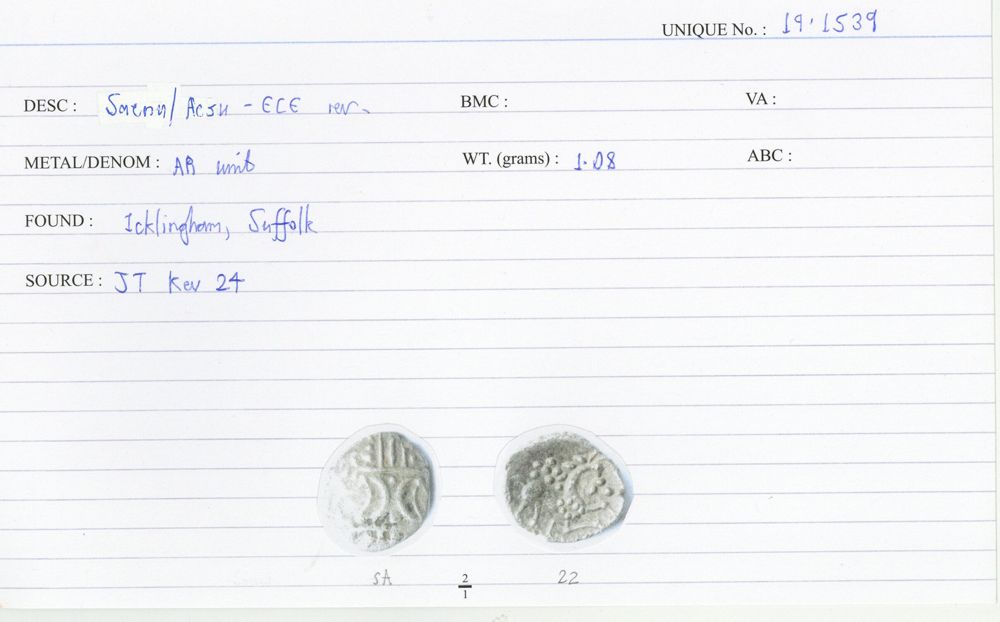 UNIQUE No. : 19.1539
DESC : Saenu/Acsu - ECE rev. BMC : VA :
METAL/DENOM : AR unit WT. (grams) : 1.08 ABC :
FOUND : Icklingham, Suffolk
SOURCE : JT Kev 24
SA 2/1 22